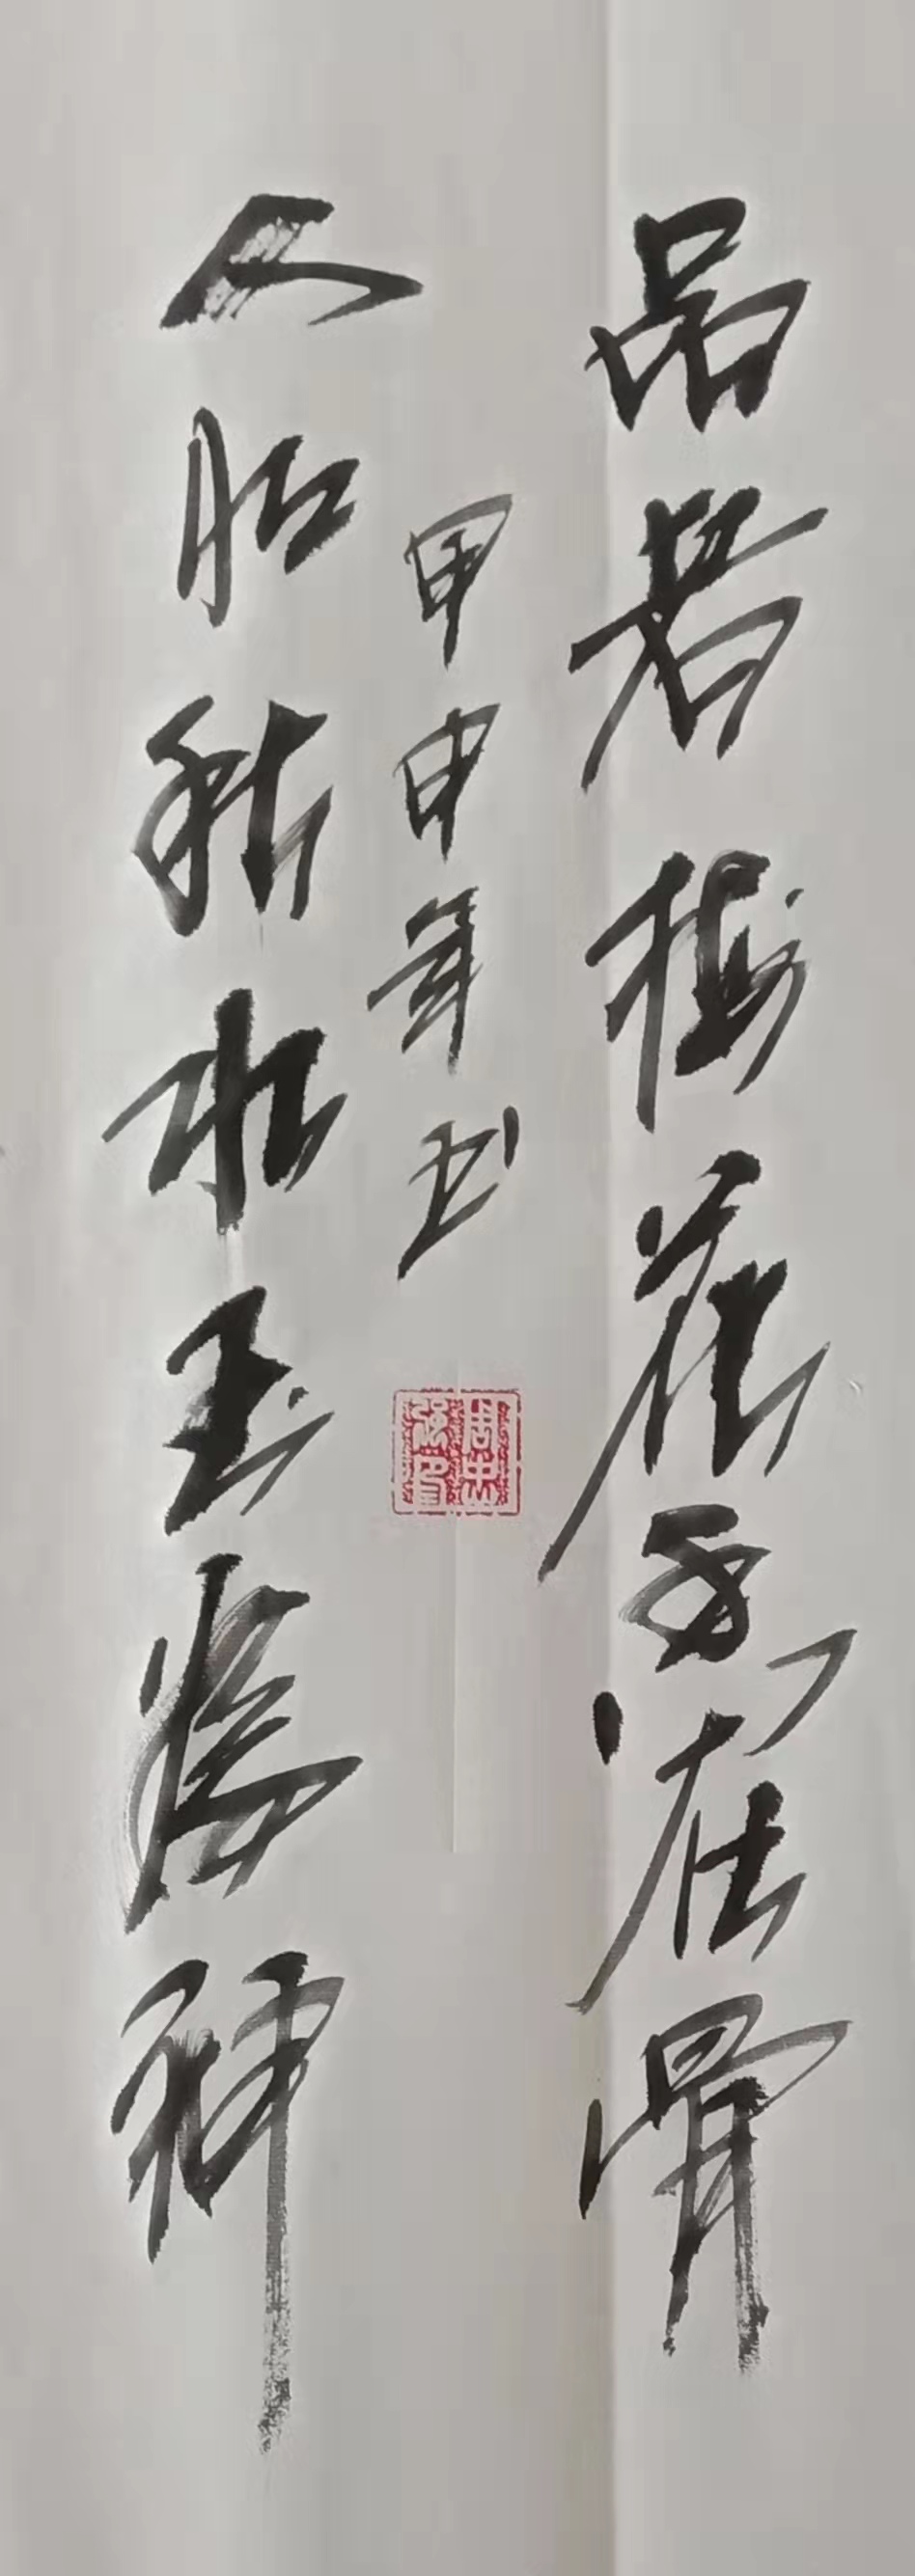 品若梅花香在骨
人如秋水玉为神
甲申年书
周忠强印